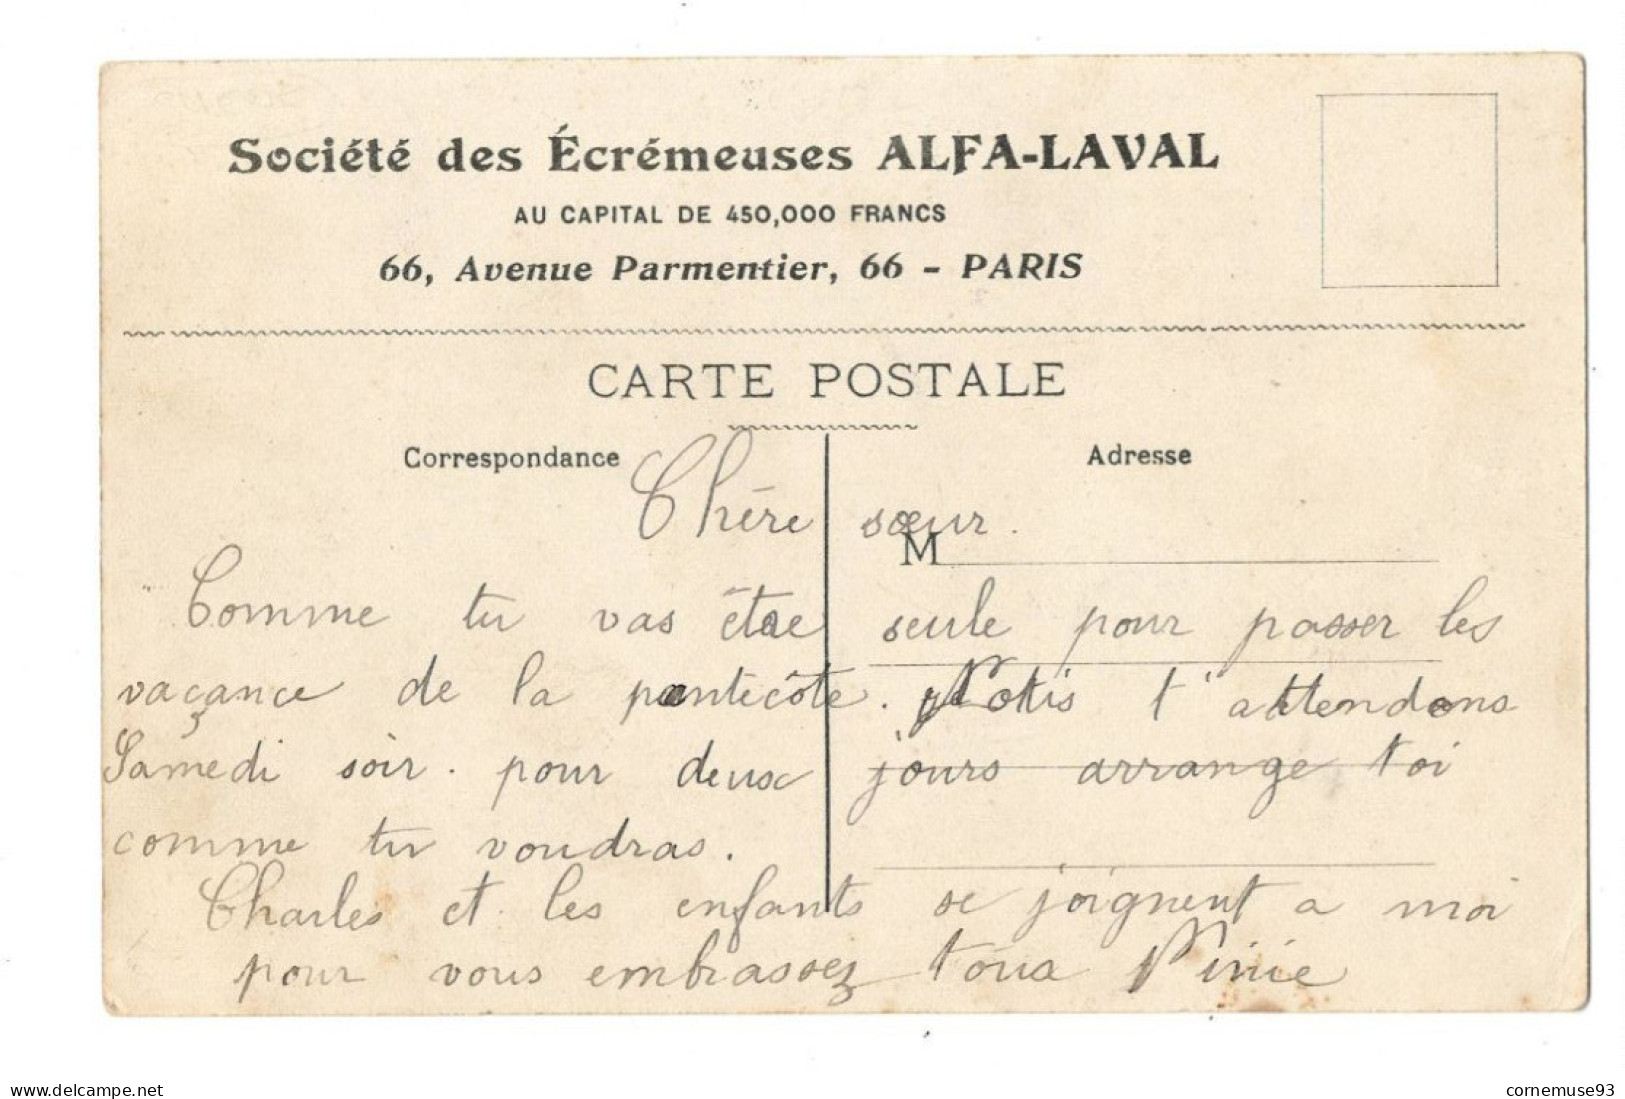 Société des Écrémeuses ALFA-LAVAL
AU CAPITAL DE 450,000 FRANCS
66, Avenue Parmentier, 66 - PARIS
CARTE POSTALE
Correspondance
Adresse
M
Chère sœur.
Comme tu vas être seule pour passer les
vaçance de la pentecôte. t'attendons
Samedi soir. pour deux jours arrange toi
comme tu voudras.
Charles et les enfants se joignent a moi
pour vous embrassez tous
www.delcampe.net
cornemuse93